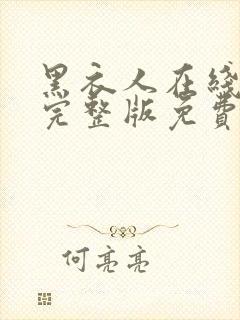 黑衣人在綫
完整版免費
何亮亮